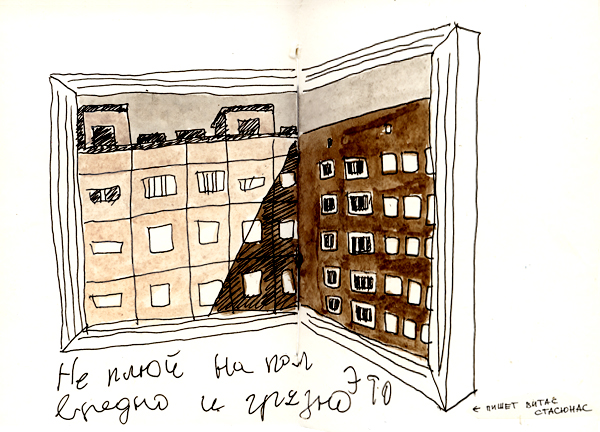 Не плюй на пол
вредно и грязно это
← пишет витас
стасюнас